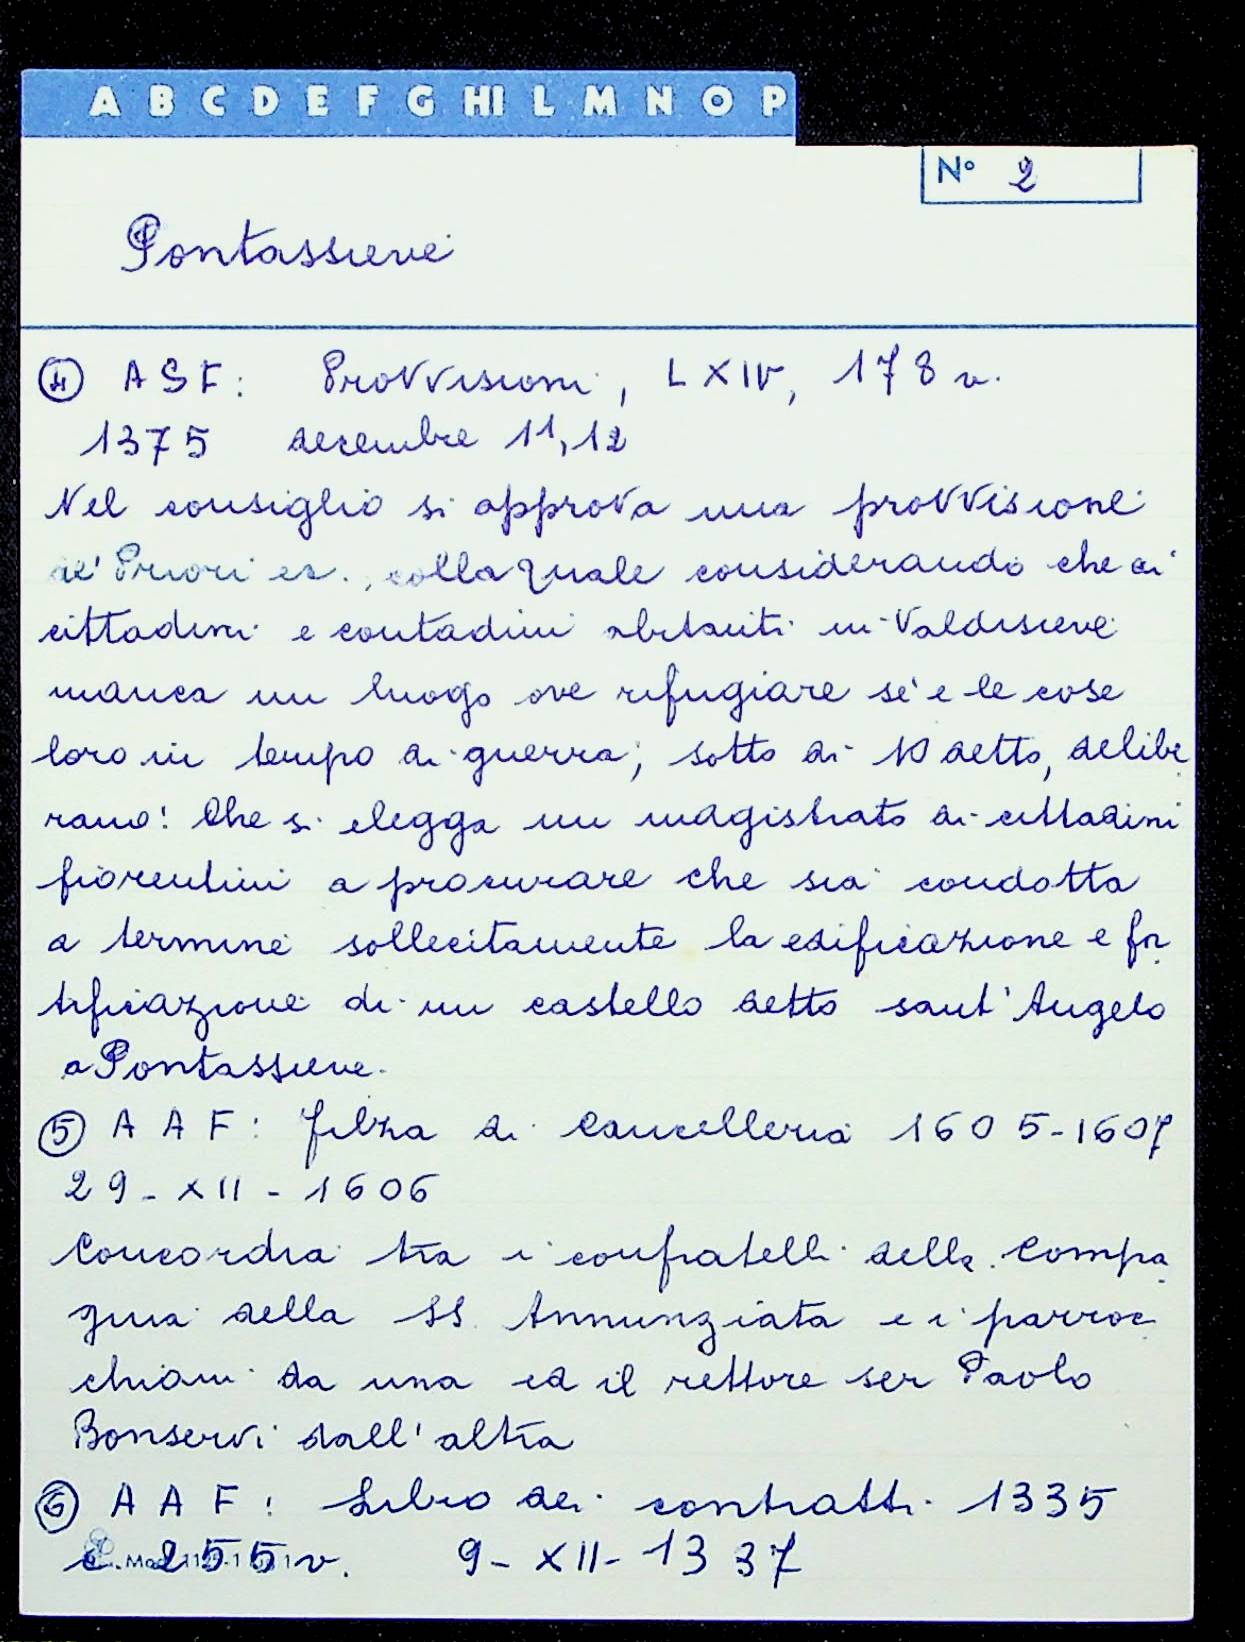 A B C D E F G HI L M N O P
N° 2
Pontassieve
④ ASF: Provvisioni, LXIV, 178 v.
1375 decembre 11, 12
Nel consiglio si approva una provvisione
de' Priori ec., colla quale considerando che ai
cittadini e contadini abitanti in Valdisieve
manca un luogo ove rifugiare sé e le cose
loro in tempo di guerra; sotto dì 10 detto, delibe
rano: Che si elegga un magistrato di cittadini
fiorentini a procurare che sia condotta
a termine sollecitamente la edificazione e for
tificazione di un castello detto sant'Angelo
a Pontassieve.
⑤ AAF: filza di Cancelleria 1605-1607
29-XII-1606
Concordia tra i confratelli della Compa
gnia della SS. Annunziata e i parroc
chiani da una ed il rettore ser Paolo
Bonservi dall'altra
⑥ AAF: Libro dei contratti 1335
c. 255 v. 9-XII-1337